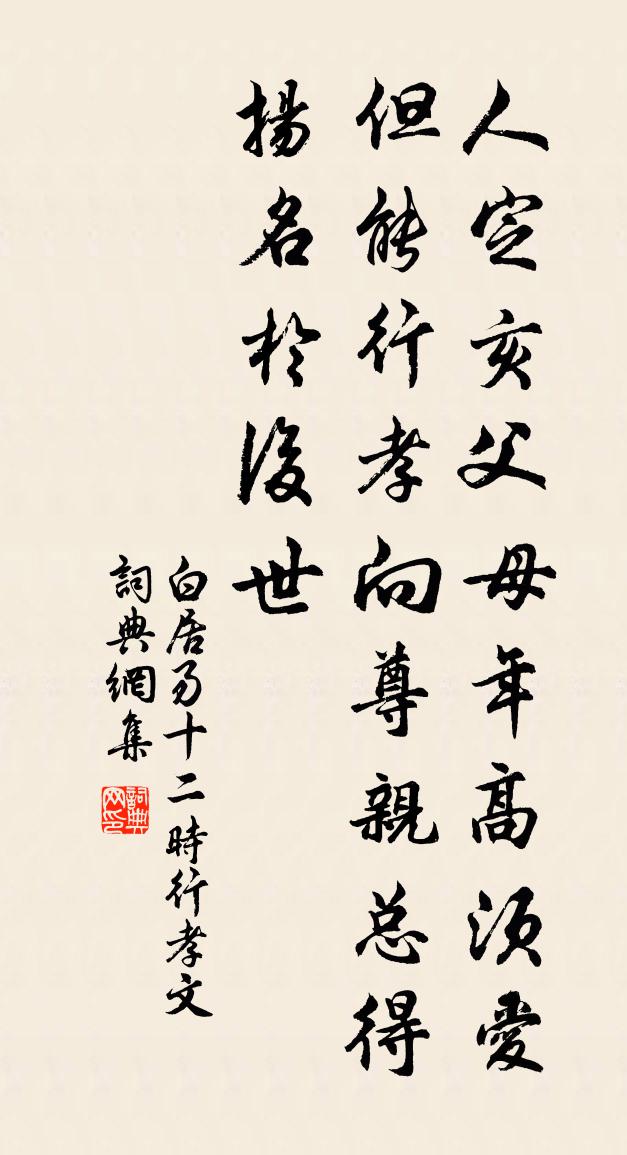 人定亥父母年高須愛
但能行孝向尊親总得
揚名於後世
白居易十二時行孝文
詞典網集
詞典
网印